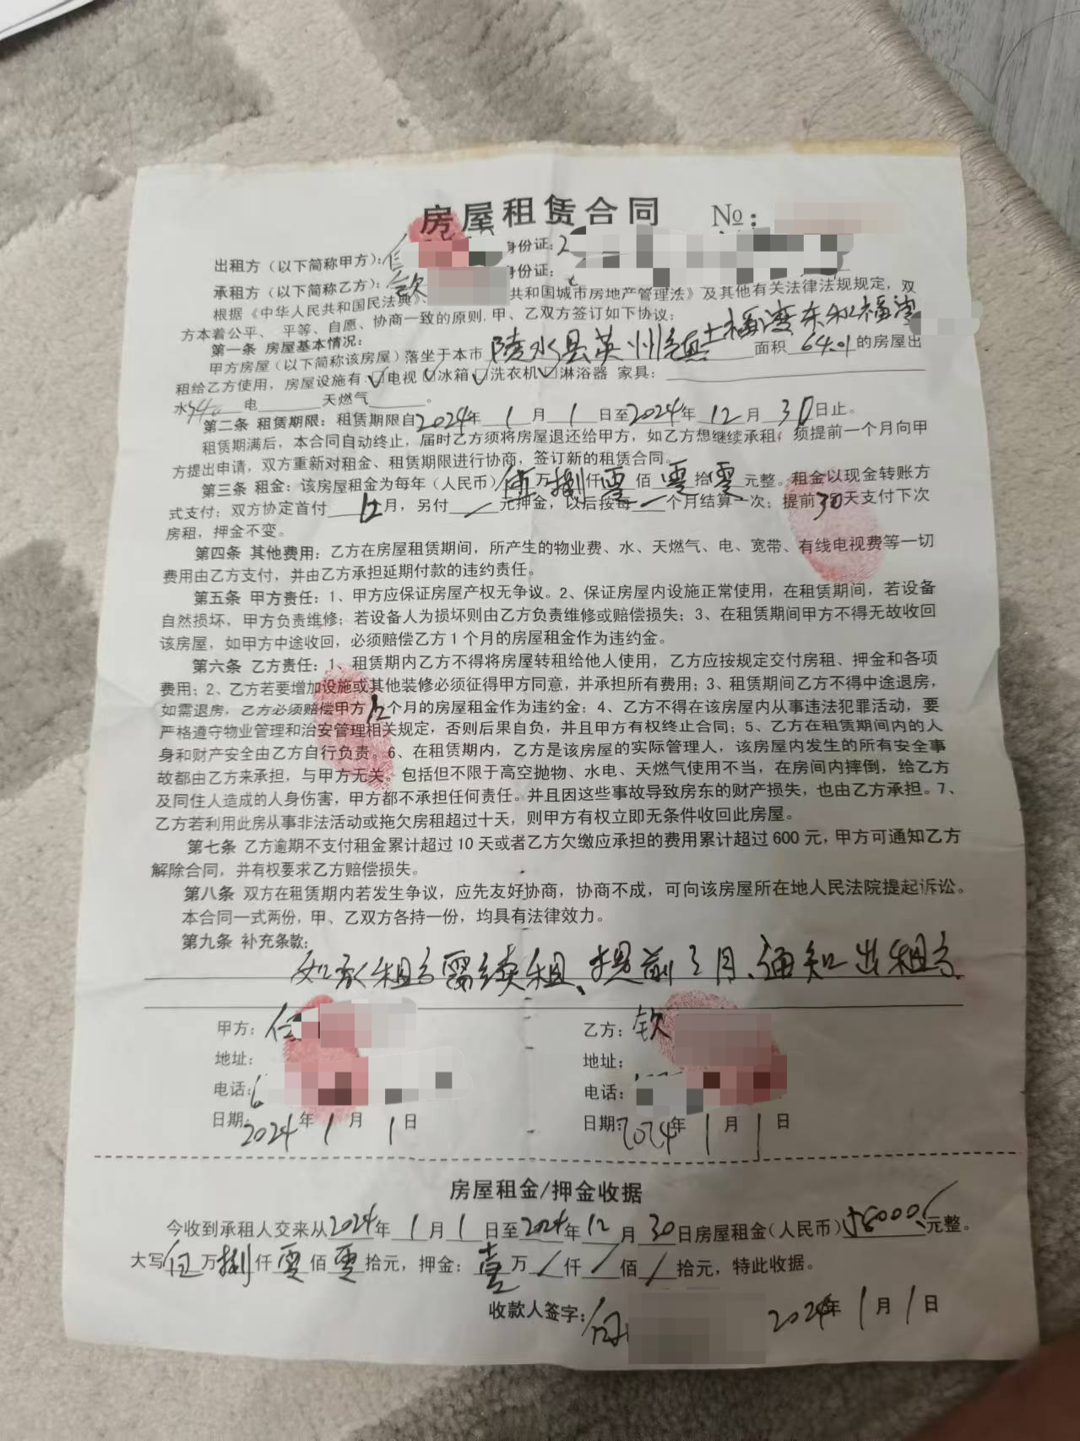 房屋租赁合同 №：
出租方（以下简称甲方）： 身份证：2
承租方（以下简称乙方）：钦 身份证：
根据《中华人民共和国民法典》 共和国城市房地产管理法》及其他有关法律法规规定，双
方本着公平、平等、自愿、协商一致的原则，甲、乙双方签订如下协议：
第一条 房屋基本情况：
甲方房屋（以下简称该房屋）落坐于本市 陵水县英州镇 福湾 福湾 面积 64.01 的房屋出
租给乙方使用，房屋设施有：✓电视 ✓冰箱 ✓洗衣机 ✓淋浴器 家具：
水 电 天燃气 。
第二条 租赁期限：租赁期限自2024年 1 月 1 日至2024年 12 月 30日止。
租赁期满后，本合同自动终止，届时乙方须将房屋退还给甲方，如乙方想继续承租，须提前一个月向甲
方提出申请，双方重新对租金、租赁期限进行协商，签订新的租赁合同。
第三条 租金：该房屋租金为每年（人民币）伍万捌仟零佰零拾零元整。租金以现金转账方
式支付；双方协定首付 月，另付 / 元押金，以后按每 个月结算一次；提前30天支付下次
房租，押金不变。
第四条 其他费用：乙方在房屋租赁期间，所产生的物业费、水、天燃气、电、宽带、有线电视费等一切
费用由乙方支付，并由乙方承担延期付款的违约责任。
第五条 甲方责任：1、甲方应保证房屋产权无争议。2、保证房屋内设施正常使用，在租赁期间，若设备
自然损坏，甲方负责维修；若设备人为损坏则由乙方负责维修或赔偿损失；3、在租赁期间甲方不得无故收回
该房屋，如甲方中途收回，必须赔偿乙方1个月的房屋租金作为违约金。
第六条 乙方责任：1、租赁期内乙方不得将房屋转租给他人使用，乙方应按规定交付房租、押金和各项
费用；2、乙方若要增加设施或其他装修必须征得甲方同意，并承担所有费用；3、租赁期间乙方不得中途退房，
如需退房，乙方必须赔偿甲方 个月的房屋租金作为违约金；4、乙方不得在该房屋内从事违法犯罪活动，要
严格遵守物业管理和治安管理相关规定，否则后果自负，并且甲方有权终止合同；5、乙方在租赁期间内的人
身和财产安全由乙方自行负责。6、在租赁期内，乙方是该房屋的实际管理人，该房屋内发生的所有安全事
故都由乙方来承担，与甲方无关。包括但不限于高空抛物、水电、天燃气使用不当，在房间内摔倒，给乙方
及同住人造成的人身伤害，甲方都不承担任何责任。并且因这些事故导致房东的财产损失，也由乙方承担。7、
乙方若利用此房从事非法活动或拖欠房租超过十天，则甲方有权立即无条件收回此房屋。
第七条 乙方逾期不支付租金累计超过10天或者乙方欠缴应承担的费用累计超过600元，甲方可通知乙方
解除合同，并有权要求乙方赔偿损失。
第八条 双方在租赁期内若发生争议，应先友好协商，协商不成，可向该房屋所在地人民法院提起诉讼。
本合同一式两份，甲、乙双方各持一份，均具有法律效力。
第九条 补充条款：
如承租方需续租、提前3月、通知出租方
甲方： 乙方：钦
地址： 地址：
电话：6 电话：
日期：2024年 1 月 1 日 日期：2024年 1 月 1 日
房屋租金/押金收据
今收到承租人交来从2024年 1 月 1 日至2024年 12 月 30日房屋租金（人民币）58000元整。
大写伍万捌仟零佰零拾元，押金：壹万/仟/佰/拾元，特此收据。
收款人签字： 2024年 1 月 1 日